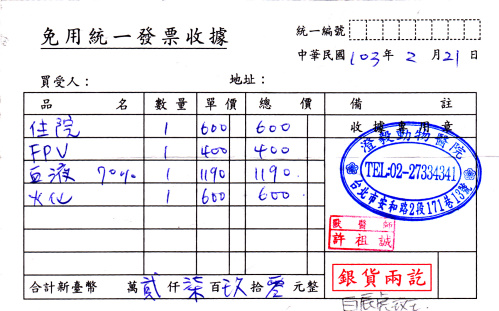 免用統一發票收據
統一編號
中華民國 103 年 2 月 21 日
買受人： 地址：
品名 數量 單價 總價 備註
住院 1 600 600 收據專用章
FPV 1 400 400
血液 70% 1 1190 1190
火化 1 600 600
澄毅動物醫院
TEL:02-27334341
台北市安和路2段171巷13號
獸醫師
許祖誠
合計新臺幣 萬 貳 仟 柒 百 玖 拾 零 元整
銀貨兩訖